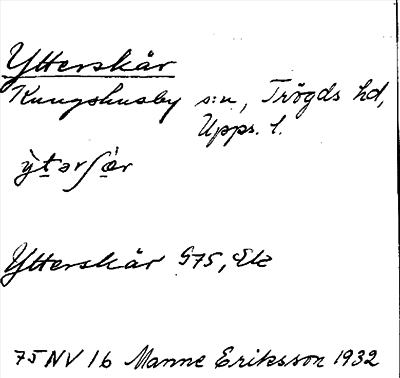 Ytterskär
Kungshusby s:n, Trögds hd,
Upps. l.
ỳtərʃæ̀r
Ytterskär G75, Ek
75 NV 1b Manne Eriksson 1932